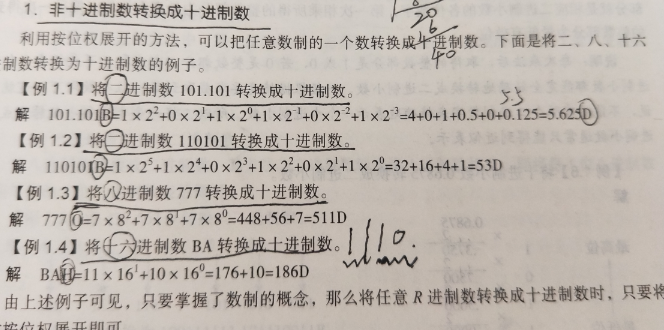 1. 非十进制数转换成十进制数
利用按位权展开的方法，可以把任意数制的一个数转换成十进制数。下面是将二、八、十六
制数转换为十进制数的例子。
【例 1.1】将二进制数 101.101 转换成十进制数。
解 101.101B=1×2²+0×2¹+1×2⁰+1×2⁻¹+0×2⁻²+1×2⁻³=4+0+1+0.5+0+0.125=5.625D
【例 1.2】将二进制数 110101 转换成十进制数。
解 110101B=1×2⁵+1×2⁴+0×2³+1×2²+0×2¹+1×2⁰=32+16+4+1=53D
【例 1.3】将八进制数 777 转换成十进制数。
解 777O=7×8²+7×8¹+7×8⁰=448+56+7=511D
【例 1.4】将十六进制数 BA 转换成十进制数。 1110.
解 BAH=11×16¹+10×16⁰=176+10=186D
由上述例子可见，只要掌握了数制的概念，那么将任意 R 进制数转换成十进制数时，只要将
按位权展开即可